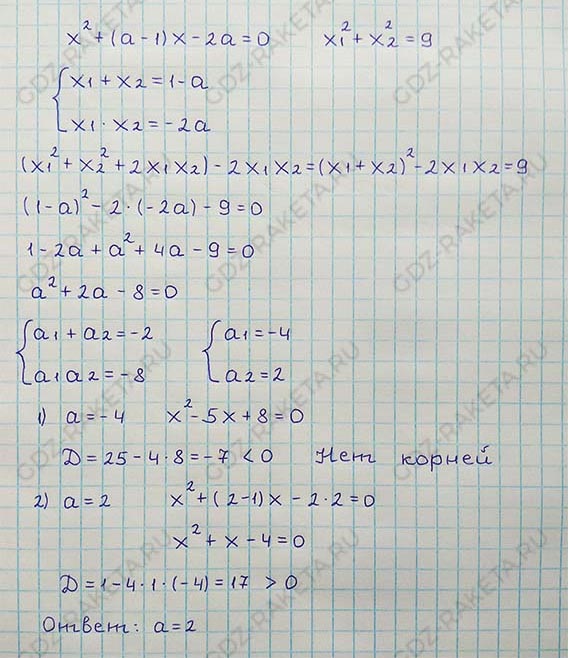 x² + (a - 1)x - 2a = 0 x₁² + x₂² = 9
{ x₁ + x₂ = 1 - a
x₁ · x₂ = -2a
(x₁² + x₂² + 2x₁x₂) - 2x₁x₂ = (x₁ + x₂)² - 2x₁x₂ = 9
(1 - a)² - 2 · (-2a) - 9 = 0
1 - 2a + a² + 4a - 9 = 0
a² + 2a - 8 = 0
{ a₁ + a₂ = -2 { a₁ = -4
a₁a₂ = -8 a₂ = 2
1) a = -4 x² - 5x + 8 = 0
D = 25 - 4 · 8 = -7 < 0 Нет корней
2) a = 2 x² + (2 - 1)x - 2 · 2 = 0
x² + x - 4 = 0
D = 1 - 4 · 1 · (-4) = 17 > 0
Ответ: a = 2
GDZ-RAKETA.RU